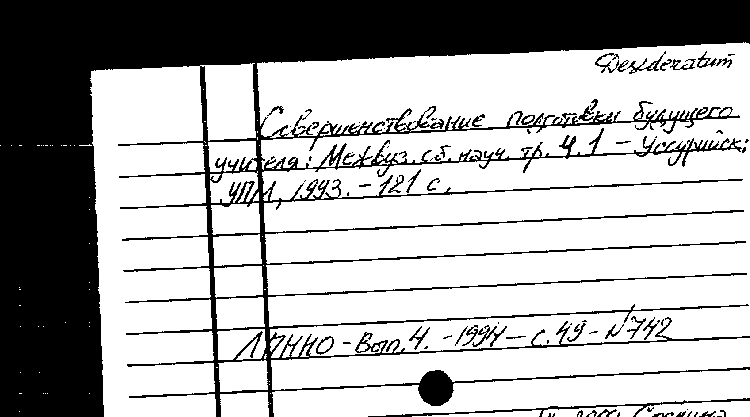 Desideratum
Совершенствование подготовки будущего
учителя: Межвуз. сб. науч. тр. Ч.1 - Уссурийск:
УПИ, 1993. - 121 с.
ЛПННО - Вып. 4. - 1994 - с. 49 - N742